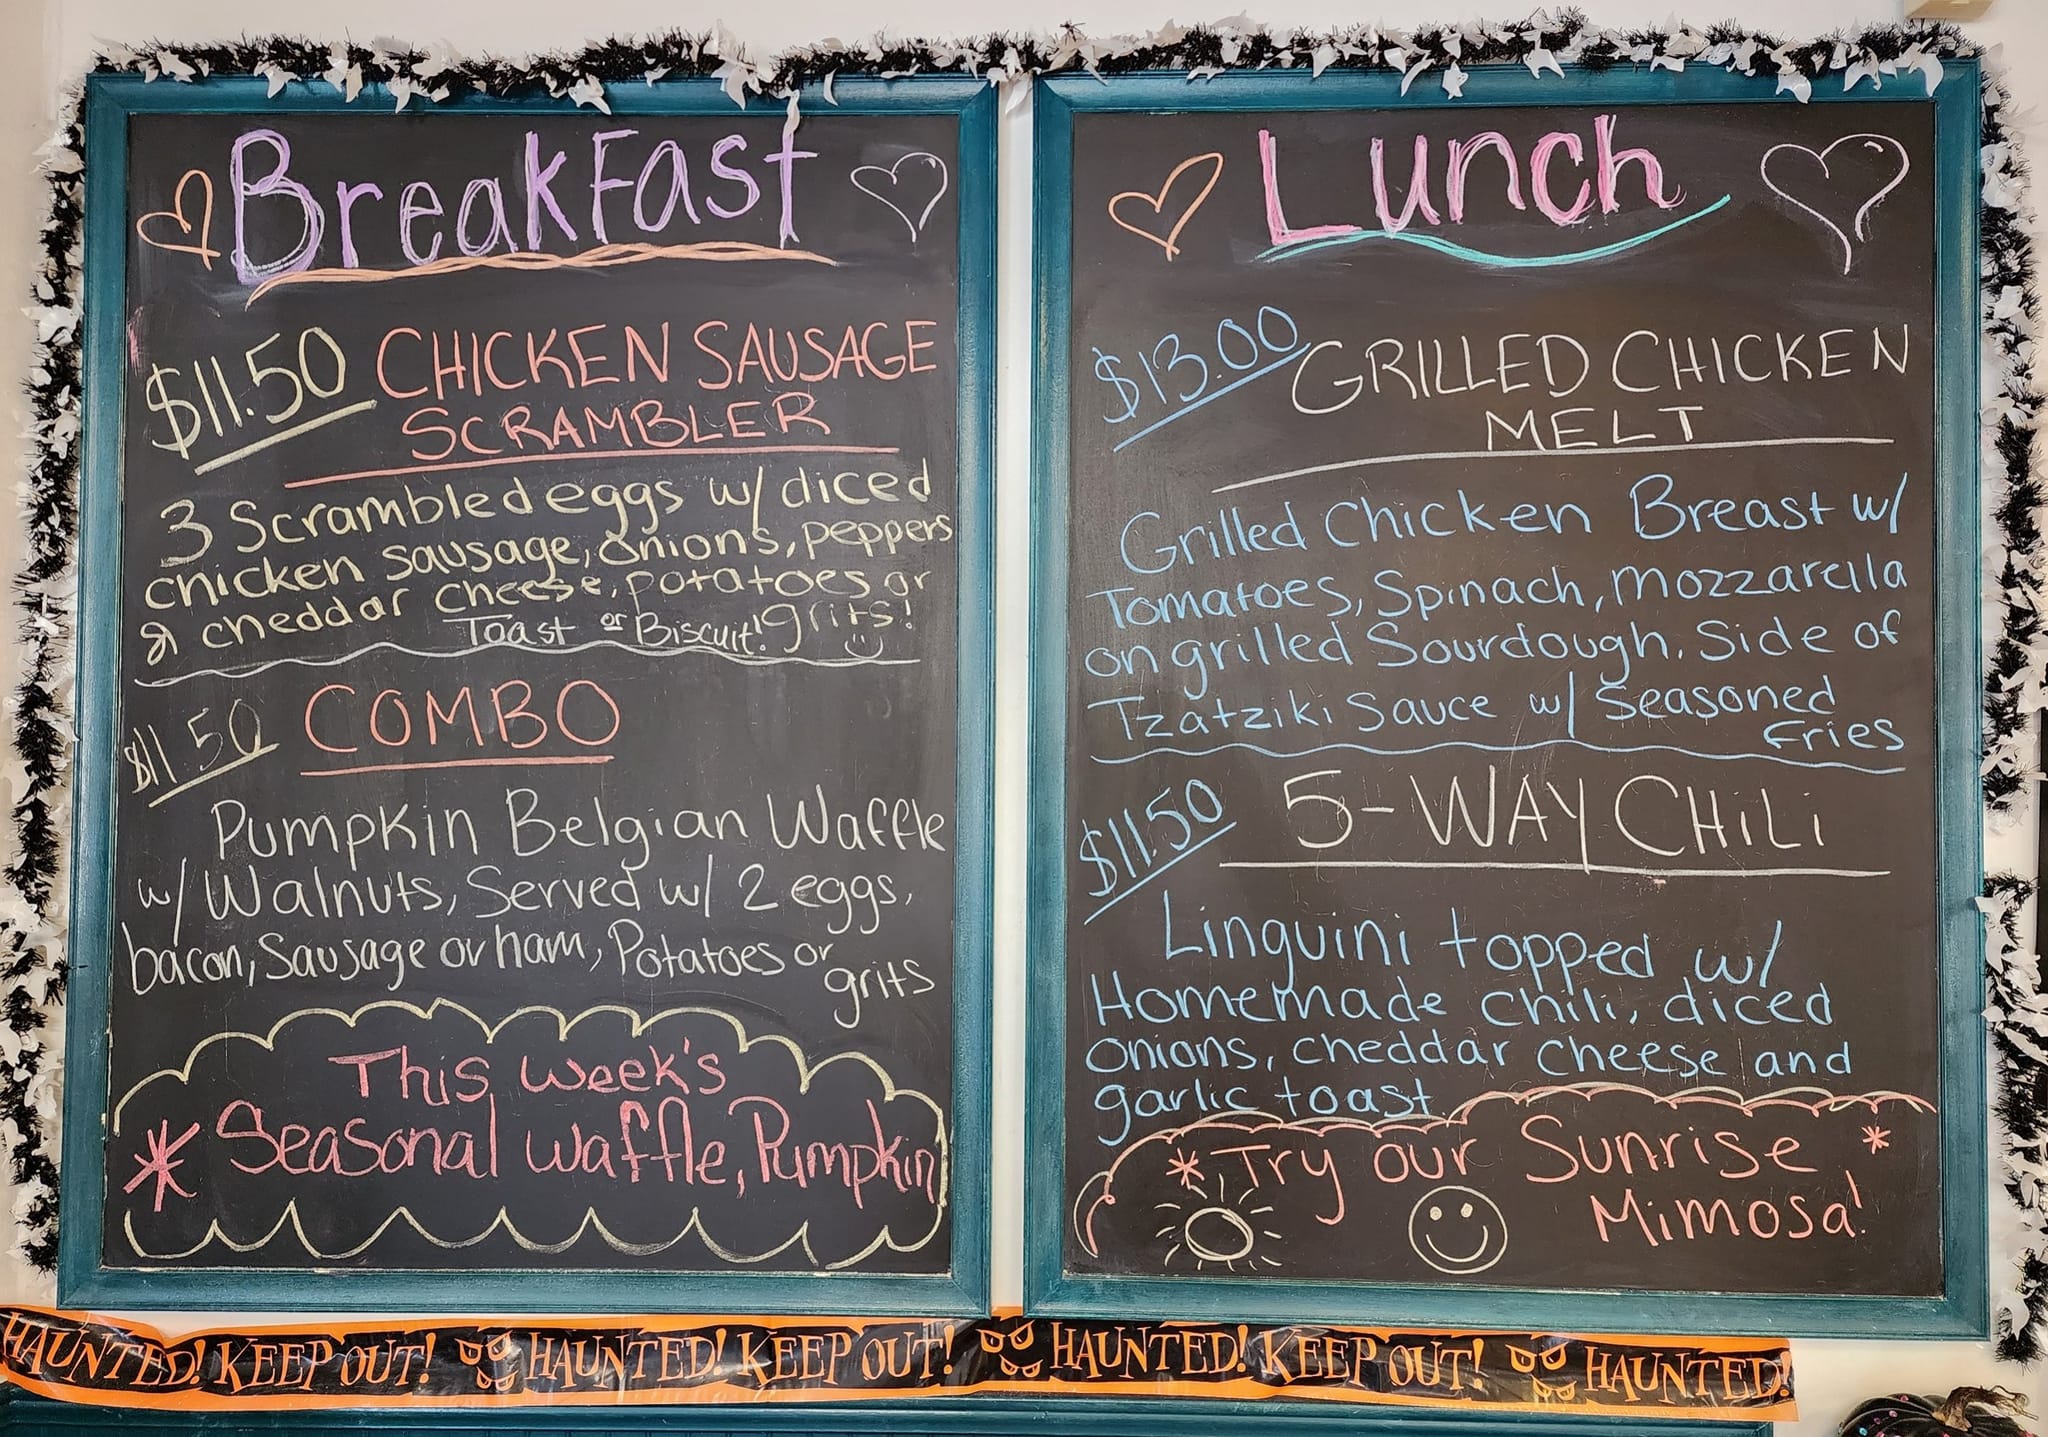 BreakFast
$11.50 CHICKEN SAUSAGE
SCRAMBLER
3 Scrambled eggs w/ diced
chicken sausage, onions, peppers
& cheddar cheese, potatoes or
Toast or Biscuit! grits!
$11.50 COMBO
Pumpkin Belgian Waffle
w/ Walnuts, Served w/ 2 eggs,
bacon, Sausage or ham, Potatoes or
grits
This week's
* Seasonal waffle, Pumpkin
Lunch
$13.00 GRILLED CHICKEN
MELT
Grilled Chicken Breast w/
Tomatoes, Spinach, Mozzarella
on grilled Sourdough. Side of
Tzatziki Sauce w/ Seasoned
Fries
$11.50 5-WAY CHiLi
Linguini topped w/
Homemade Chili, diced
onions, cheddar cheese and
garlic toast.
* Try our Sunrise *
Mimosa!
HAUNTED! KEEP OUT! HAUNTED! KEEP OUT! HAUNTED! KEEP OUT! HAUNTED!